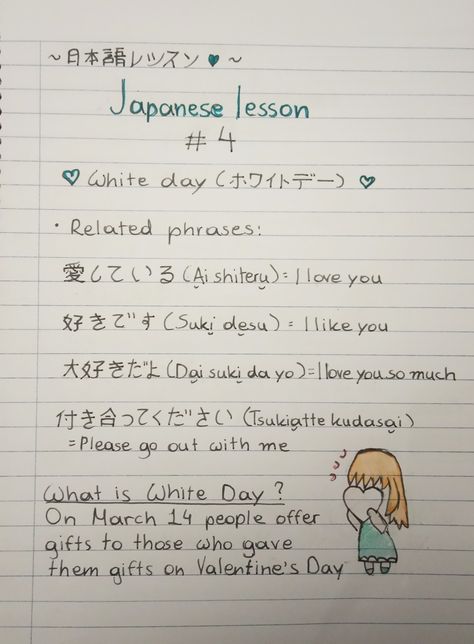 ~日本語レッスン♥~
Japanese lesson
#4
♡ White day (ホワイトデー) ♡
· Related phrases:
愛している (Ai shiteru) = I love you
好きです (Suki desu) = I like you
大好きだよ (Dai suki da yo) = I love you so much
付き合ってください (Tsukiatte kudasai)
= Please go out with me
What is White Day?
On March 14 people offer
gifts to those who gave
them gifts on Valentine's Day